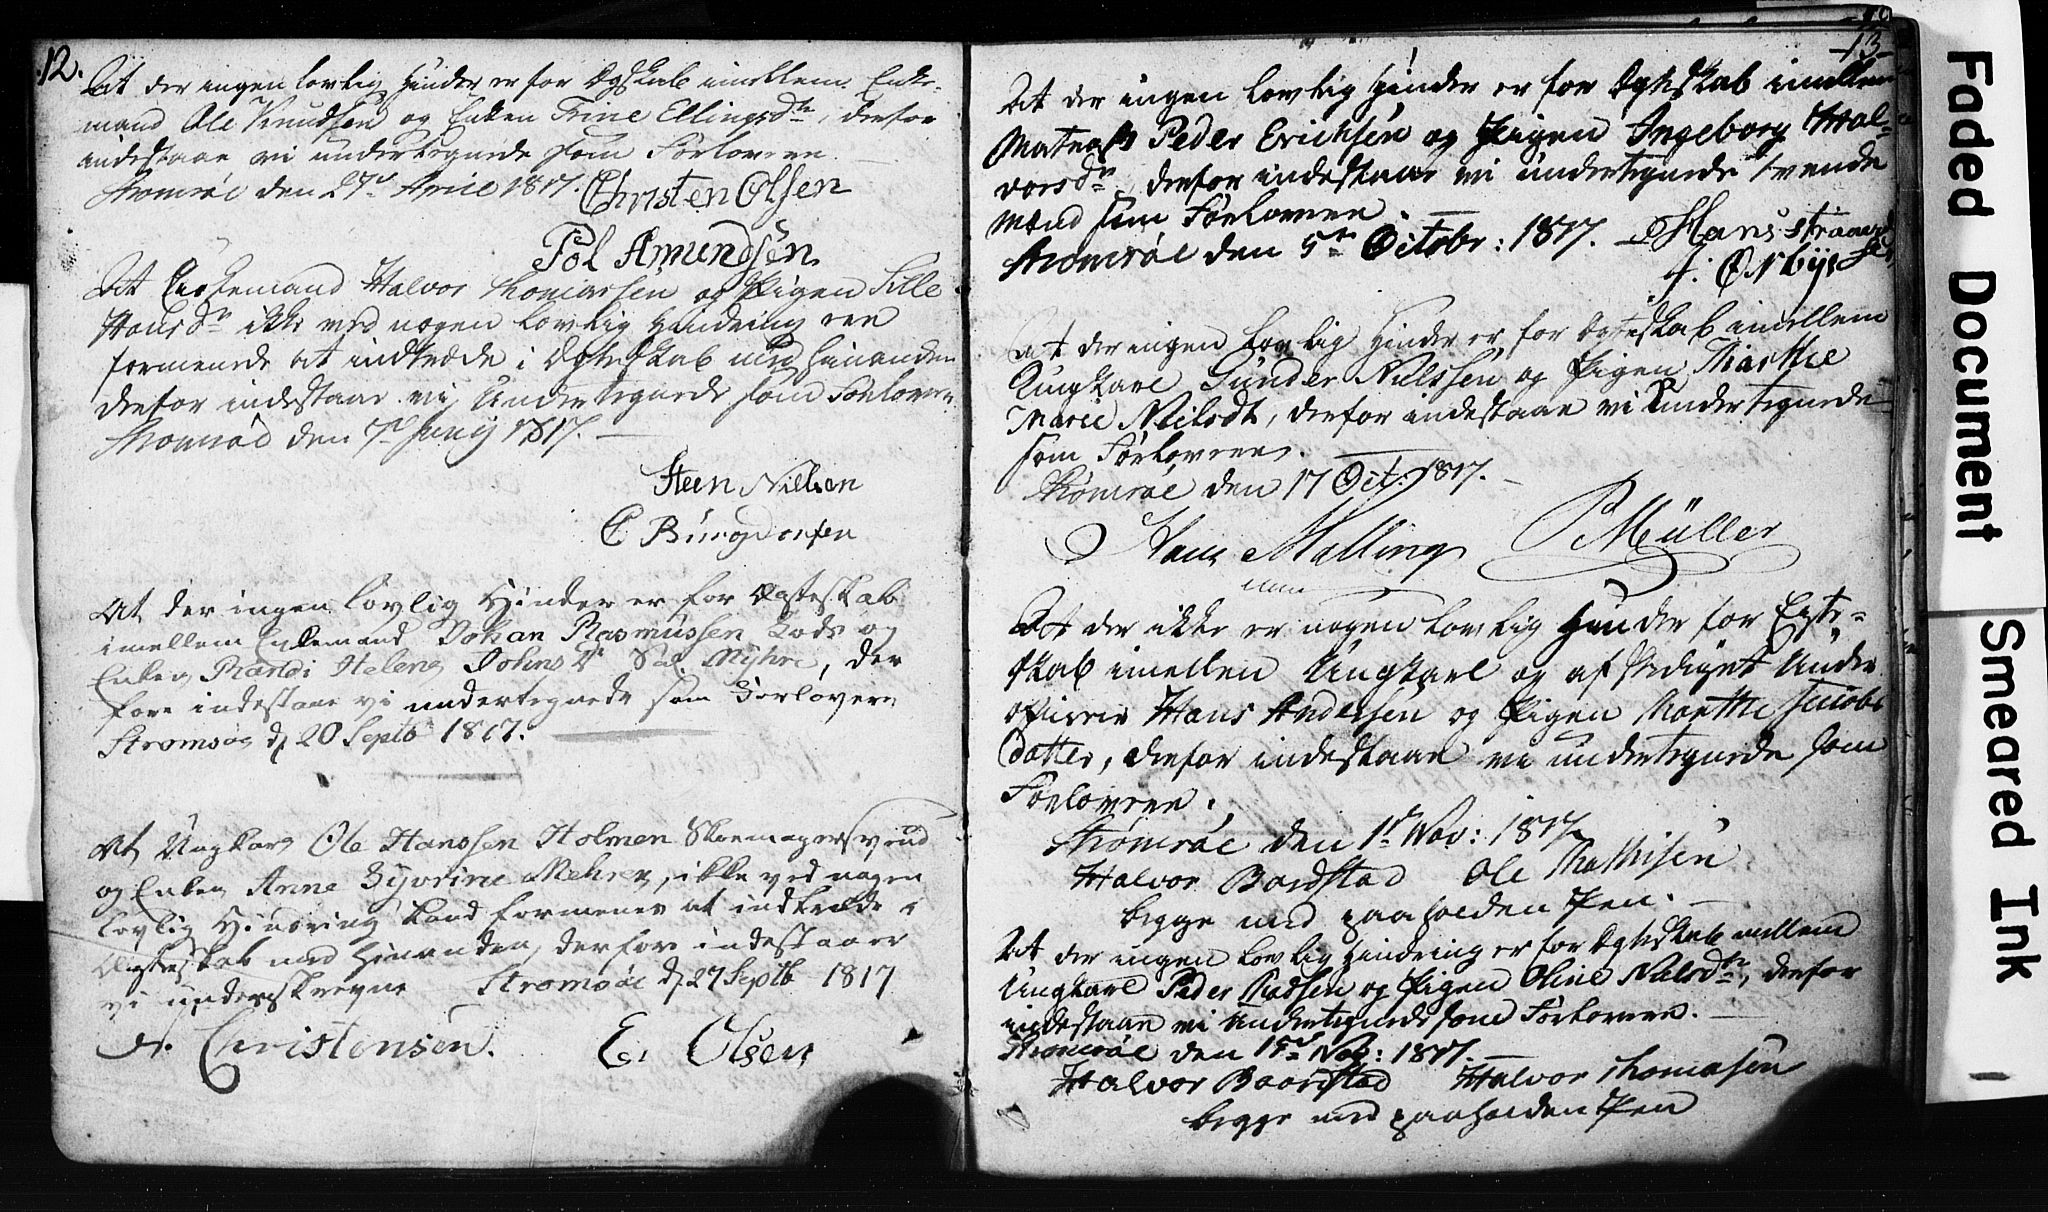 12.
At der ingen lovlig Hinder er for Egteskab imellem Enke-
mand Ole Knudsen og Enken Trine Ellingsdr, derfor
indestaae vi undertegnede som Forlovere.
Stromsøe den 27d April 1817. Christen Olsen
Pol Amundsen
At Enkemand Halvor Thomassen og Pigen Sille
Hansdr ikke ved nogen lovlig Hindring
formenede at indtræde i Egteskab med hinanden
derfor indestaae vi Undertegnede som Forlovere
Stromsøe den 7d Junij 1817.
Steen Nilsen
C Burgdorfen
At der ingen lovlig Hinder er for Ægteskab
imellem Enkemand Johan Rasmussen Lods og
Enken Randi Helene Johnsdr Sal. Myhre, der
fore indestaae vi undertegnede som Forlovere
Stromsøe d 20 Septb 1817.
At Ungkarl Ole Hanssen Holmen Skoemagersvend
og Enken Anne Syvrine Mehren, ikke ved nogen
lovlig Hindring kand formenes at indtræde i
Ægteskab med Hinanden, derfore indestaaer
vi underskrevne Stromsøe d 27 Septb 1817
Christensen. E. Olsen
13
At der ingen lovlig Hinder er for Egteskab imellem
Matros Peder Erichsen og Pigen Ingeborg Hal-
vorsdr, derfor indestaae vi undertegnede tvende
Mænd som Forlovere.
Stromsøe den 5te Octobr: 1817. Hans
At der ingen lovlig Hinder er for Egteskab imellem
Ungkarl Gunder Nielssen og Pigen Marthe
Maree Neilsdt, derfor indestaae vi Undertegnede
som Forlovere.
Strømsøe den 17 Oct: 1817.
Hans Melling P Müller
At der ikke er nogen lovlig Hinder for Egte-
skab imellem Ungkarl og afskediget Under
officeer Hans Andersen og Pigen Marthe Jacobs
datter, derfor indestaae vi undertegnede som
Forlovere.
Strømsøe den 1d Nov: 1817
Halvor Bordstad Ole Mathisen
begge med paaholden Pen.
At der ingen lovlig Hindring er for Egteskab imellem
Ungkarl Peder Madsen og Pigen Oline Nielsdr, derfor
indestaae vi Undertegnede som Forlovere.
Stromsøe den 15d Nov: 1817.
Halvor Baardstad Halvor Thomasen
begge med paaholden Pen
Faded Document
Smeared Ink